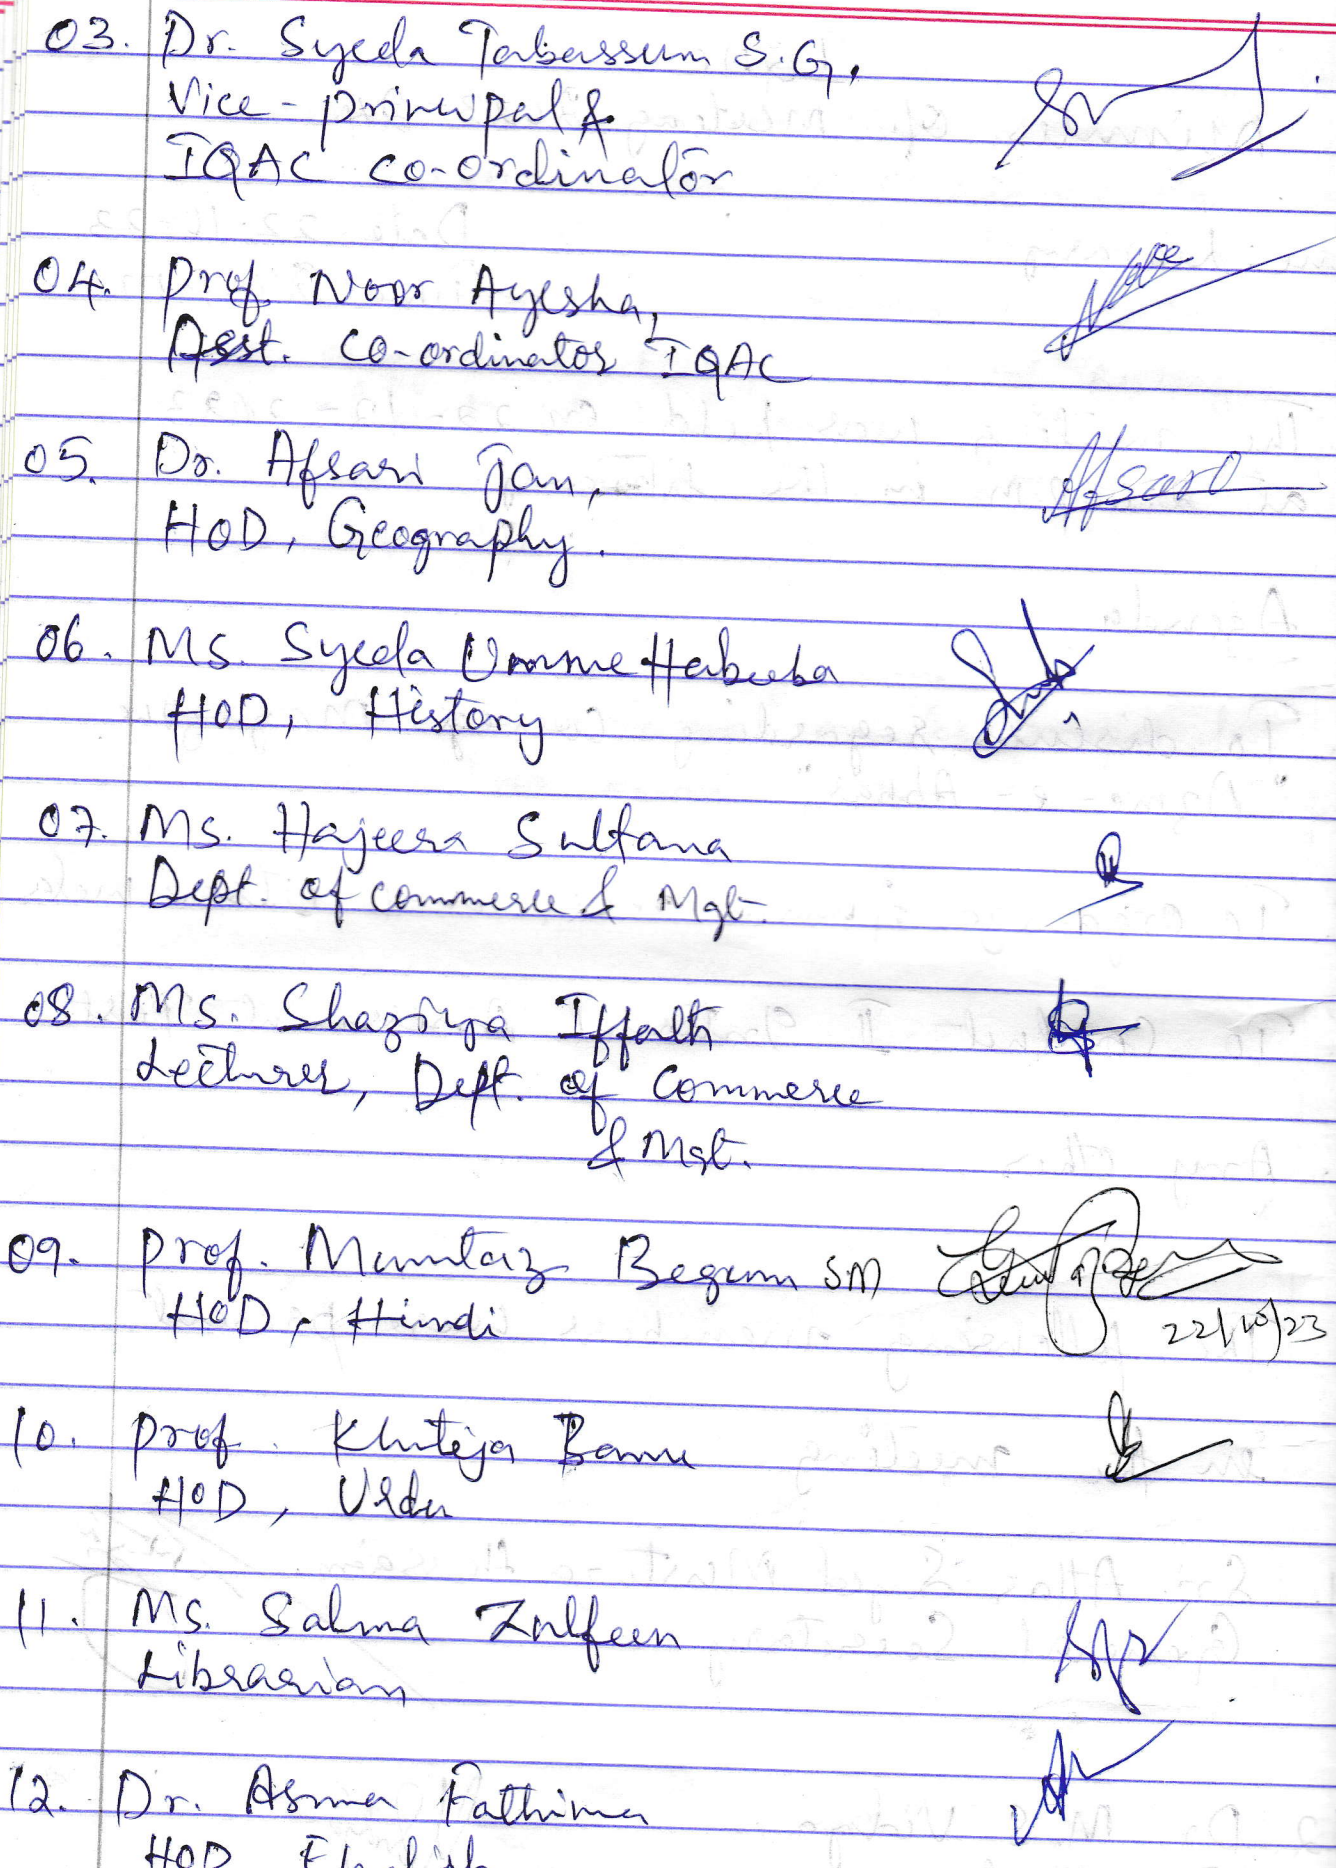 03. Dr. Syeda Tabassum S.G,
Vice-principal &
IQAC co-ordinator
04. Prof. Noor Ayesha,
Asst. co-ordinator IQAC
05. Dr. Afsari Jan, Afsar
HOD, Geography.
06. Ms. Syeda Umme Habeeba
HOD, History
07. Ms. Hajeera Sultana
Dept. of commerce & Mgt.
08. Ms. Shaziya Iffath
Lecturer, Dept. of Commerce
& Mgt.
09. Prof. Mumtaz Begum SM
HOD, Hindi 22/10/23
10. Prof. Khuteja Banu
HOD, Urdu
11. Ms. Salma Zulfeen
Librarian
12. Dr. Asma Fathima
HOD English